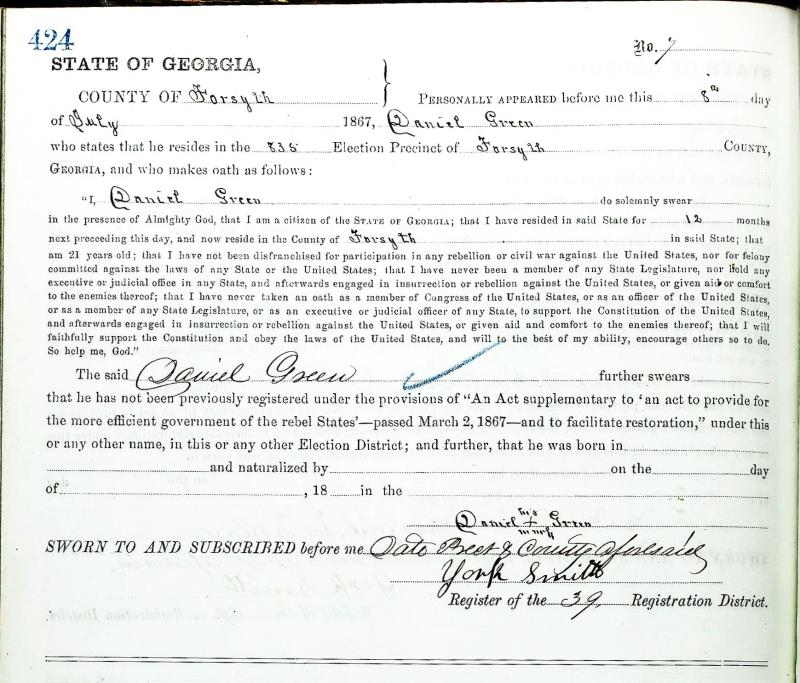 424
No. 7
STATE OF GEORGIA,
COUNTY OF Forsyth } PERSONALLY APPEARED before me this 8th day
of July 1867, Daniel Green
who states that he resides in the 835 Election Precinct of Forsyth COUNTY,
GEORGIA, and who makes oath as follows:
"I, Daniel Green do solemnly swear
in the presence of Almighty God, that I am a citizen of the STATE OF GEORGIA; that I have resided in said State for 12 months
next preceeding this day, and now reside in the County of Forsyth in said State; that
am 21 years old; that I have not been disfranchised for participation in any rebellion or civil war against the United States, nor for felony
committed against the laws of any State or the United States; that I have never been a member of any State Legislature, nor held any
executive or judicial office in any State, and afterwards engaged in insurrection or rebellion against the United States, or given aid or comfort
to the enemies thereof; that I have never taken an oath as a member of Congress of the United States, or as an officer of the United States,
or as a member of any State Legislature, or as an executive or judicial officer of any State, to support the Constitution of the United States,
and afterwards engaged in insurrection or rebellion against the United States, or given aid and comfort to the enemies thereof; that I will
faithfully support the Constitution and obey the laws of the United States, and will to the best of my ability, encourage others so to do.
So help me, God."
The said Daniel Green further swears
that he has not been previously registered under the provisions of "An Act supplementary to 'an act to provide for
the more efficient government of the rebel States'—passed March 2, 1867—and to facilitate restoration," under this
or any other name, in this or any other Election District; and further, that he was born in
and naturalized by on the day
of , 18 in the
his
Daniel + Green
mark
SWORN TO AND SUBSCRIBED before me Date Prect & County aforesaid
York Smith
Register of the 39 Registration District.